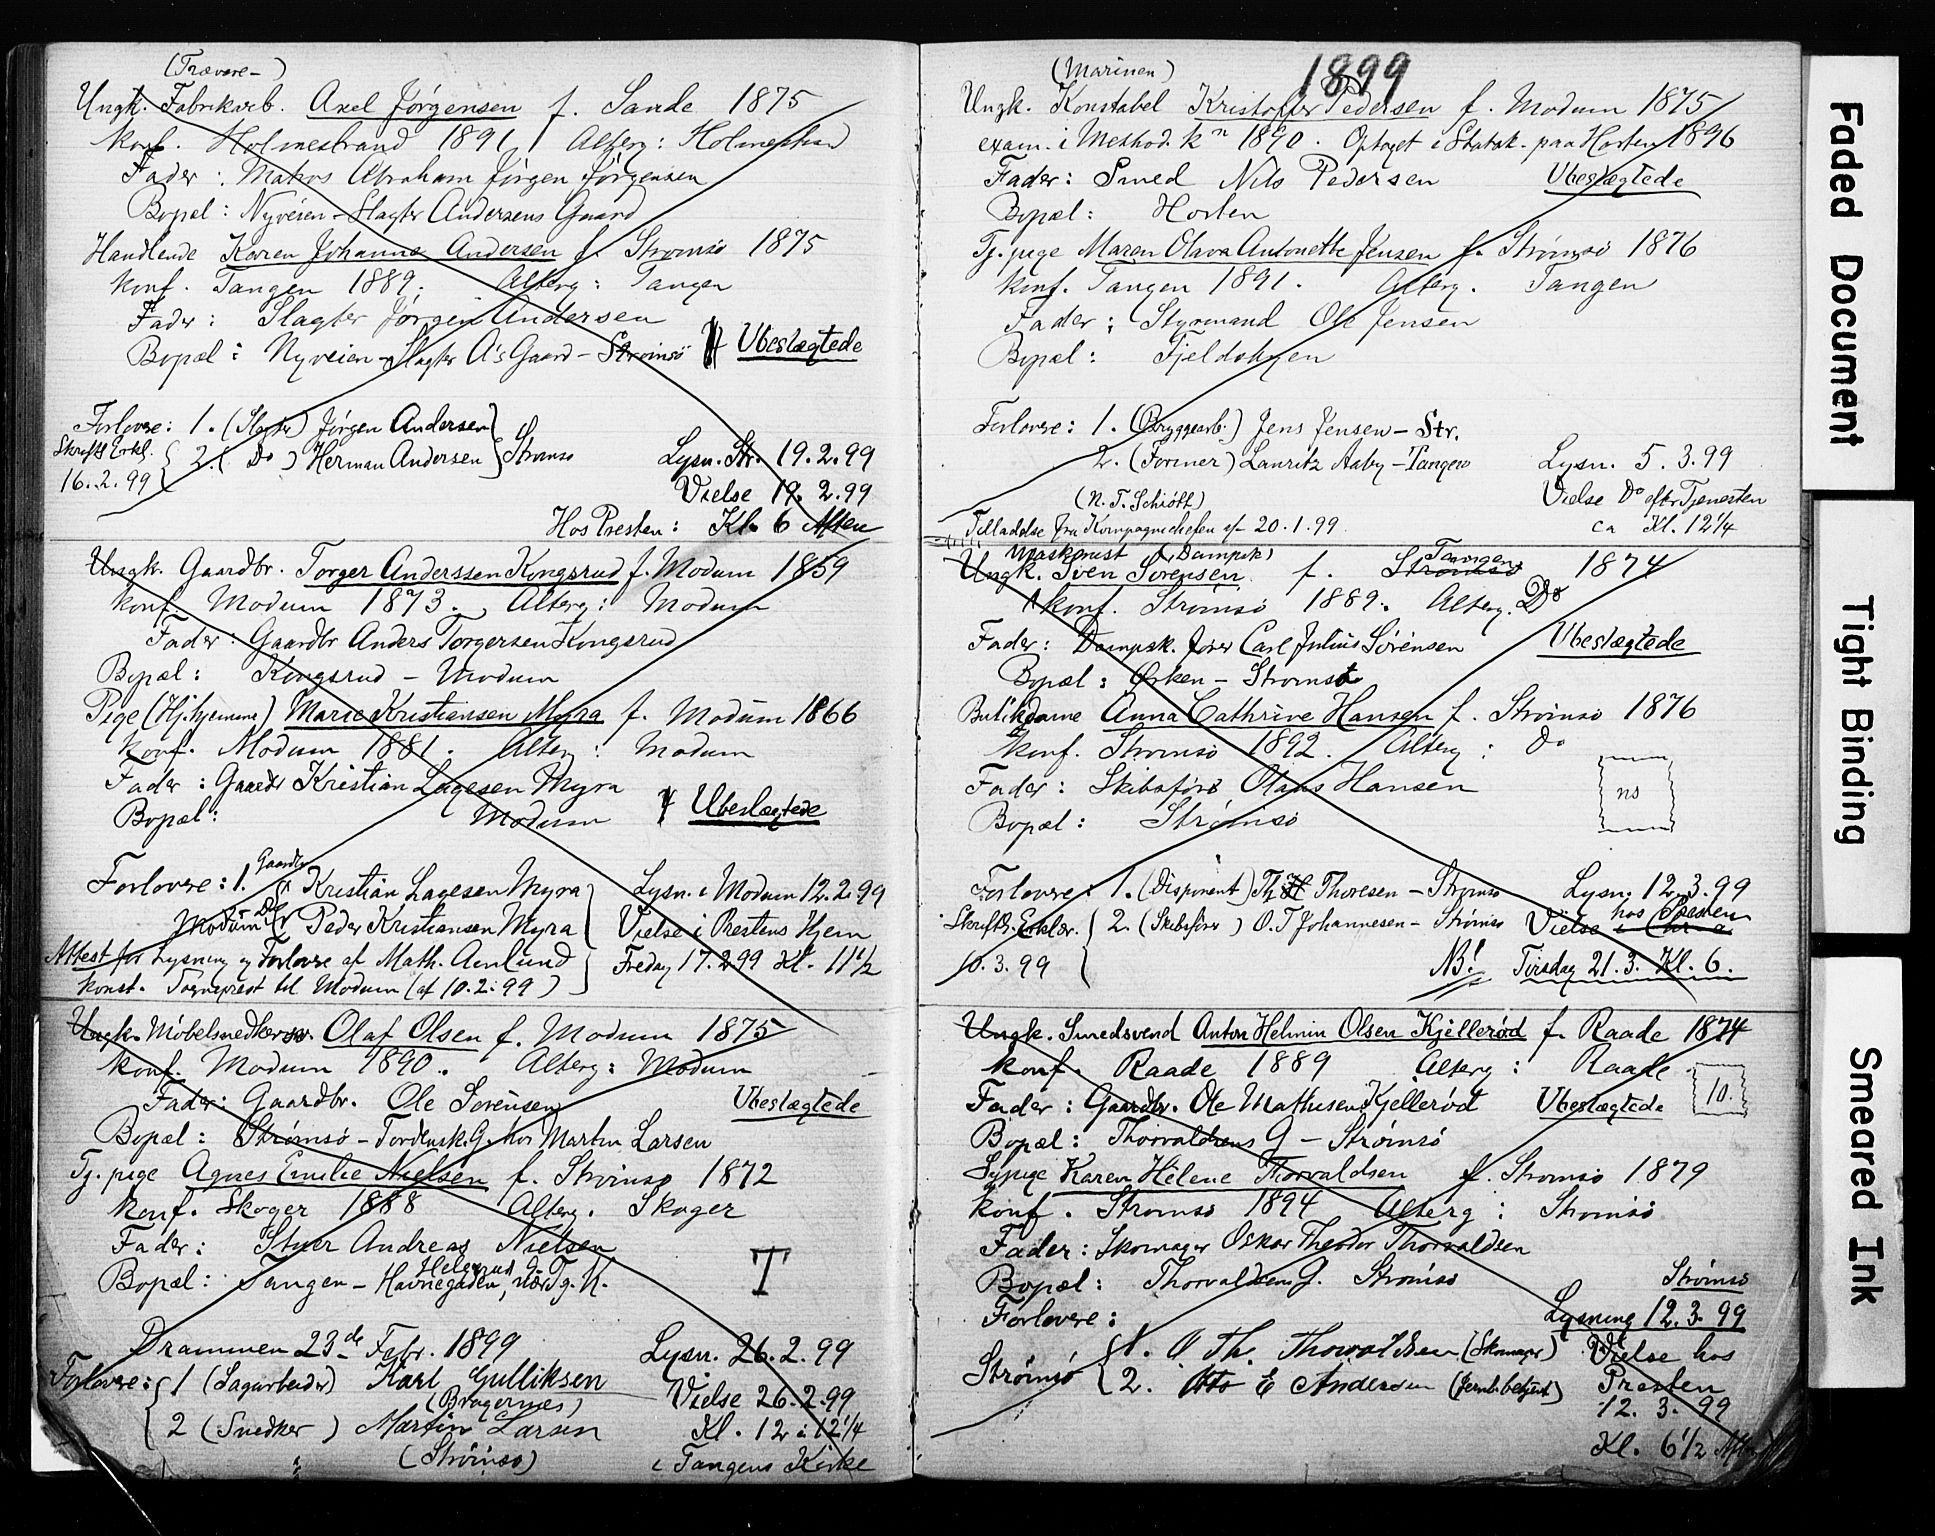 (Trævare-)
Ungk. Fabrikarb. Axel Jørgensen f. Sande 1875
konf. Holmestrand 1891, Alterg: Holmestrand
Fader: Matros Abraham Jørgen Jørgensen
Bopæl: Nyveien - Slagter Andersens Gaard
Handlende Karen Johanne Andersen f. Strømsø 1875
konf. Tangen 1889. Alterg: Tangen
Fader: Slagter Jørgen Andersen
Bopæl: Nyveien - Slagter A's Gaard - Strømsø Ubeslægtede
Forlovere: 1. (Slagter) Jørgen Andersen
Skriftl. Erkl. 2. ( Do ) Herman Andersen } Strømsø Lysn. Str. 19.2.99
16.2.99 Vielse 19.2.99
Hos Presten: Kl. 6 Aften
Ungk. Gaardbr. Torger Anderssen Kongsrud f. Modum 1859
konf. Modum 1873. Alterg: Modum
Fader: Gaardbr Anders Torgersen Kongsrud
Bopæl: Kongsrud - Modum
Pige (Hj. hjemme) Marie Kristiansen Myra f. Modum 1866
konf. Modum 1881. Alterg: Modum
Fader: Gaardbr Kristian Lagesen Myra
Bopæl: Modum Ubeslægtede
Forlovere: 1. Gaardbr Kristian Lagesen Myra Lysn. i Modum 12.2.99
Modum Do Peder Kristiansen Myra Vielse i Prestens Hjem
Attest for Lysning og Forlovere af Math. Amlund Fredag 17.2.99 Kl. 11½
konst. Sogneprest til Modum (af 10.2.99)
Ungk. Møbelsnedker Olaf Olsen f. Modum 1875
konf. Modum 1890. Alterg: Modum
Fader: Gaardbr. Ole Sørensen Ubeslægtede
Bopæl: Strømsø - Tordensk. G. hos Martin Larsen
Tj. pige Agnes Emilie Nielsen f. Strømsø 1872
konf. Skoger 1888 Alterg. Skoger
Fader: Styer Andreas Nielsen
Bopæl: Tangen - Havnegaden, T
Drammen 23de Febr. 1899 Lysn. 26.2.99
Forlovere: 1 (Sagarbeider) Karl Gulliksen Vielse 26.2.99
(Bragernæs)
2 (Snedker) Martin Larsen Kl. 12 à 12¼
(Strømsø) i Tangens Kirke
1899
(Marinen)
Ungk. Konstabel Kristoffer Pedersen f. Modum 1875
exam. i Method. kn 1890. Optaget i Statsk. paa Horten 1896
Fader: Smed Nils Pedersen Ubeslægtede
Bopæl: Horten
Tj. pige Maren Olava Antonette Jensen f. Strømsø 1876
konf. Tangen 1891. Alterg. Tangen
Fader: Styrmand Ole Jensen
Bopæl:
Forlovere: 1. (Bryggearb.) Jens Jensen - Str.
2. (Former) Lauritz Aaby - Tangen Lysn. 5.3.99
(N. T. Schiøtt) Vielse Do efter Tjenesten
Tilladelse fra Kompagnichefen af 20.1.99. ca Kl. 12¼
Maskinist (Dampsk)
Ungk. Sven Sørensen f. Strømsø Tangen 1874
konf. Strømsø 1889. Alterg. Do
Fader: Dampsk. fører Carl Julius Sørensen Ubeslægtede
Bopæl: Ørken - Strømsø
Butikdame Anna Cathrine Hansen f. Strømsø 1876
konf. Strømsø 1892. Alterg: Do
Fader: Skibsfører Olaus Hansen
ns
Bopæl: Strømsø
Forlovere: 1. (Disponent) Th. Thoresen - Strømsø Lysn. 12.3.99
Skriftl. Erklær. 2. (Skibsfører) O. T Johannesen - Strømsø Vielse hos Presten
10.3.99 NB! Tirsdag 21.3. Kl. 6.
Ungk. Smedsvend Anton Helmin Olsen Kjellerød f. Raade 1874
konf. Raade 1889 Alterg: Raade
Fader: Gaardbr. Ole Mathisen Kjellerød Ubeslægtede 10.
Bopæl: Thorvaldsens G - Strømsø
Sypige Karen Helene Thorvaldsen f. Strømsø 1879
konf. Strømsø 1894 Alterg: Strømsø
Fader: Skomager Oskar Theodor Thorvaldsen
Bopæl: Thorvaldsens G. Strømsø Strømsø
Forlovere: Lysning 12.3.99
Strømsø 1. O Th. Thorvaldsen (Skomager) Vielse hos
2. E Andersen (Jernb.betjent) Presten
12.3.99
Kl. 6½ Aften
Faded Document
Tight Binding
Smeared Ink